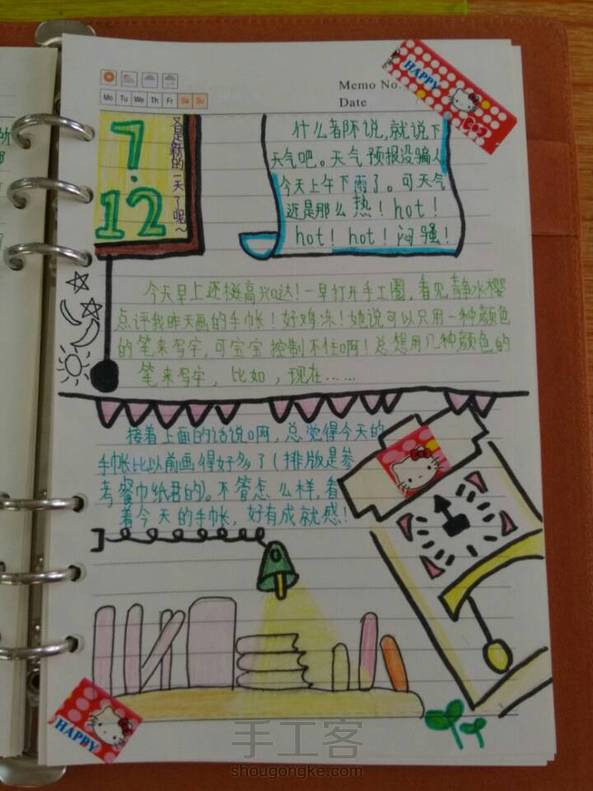 Memo No.
Date
Mo Tu We Th Fr Sa Su
HAPPY
7.12
又是新的一天了呢~
什么都不说,就说下
天气吧。天气预报没骗人
今天上午下雨了。可天气
还是那么热!hot!
hot!hot!闷骚!
今天早上还挺高兴哒!一早打开手工圈,看见静水樱
点评我昨天画的手帐!好鸡冻!她说可以只用一种颜色
的笔来写字,可宝宝控制不住啊!总想用几种颜色的
笔来写字,比如,现在……
接着上面的话说啊,总觉得今天的
手帐比以前画得好多了(排版是参
考餐巾纸君的)。不管怎么样,看
着今天的手帐,好有成就感!
HAPPY
手工客
shougongke.com